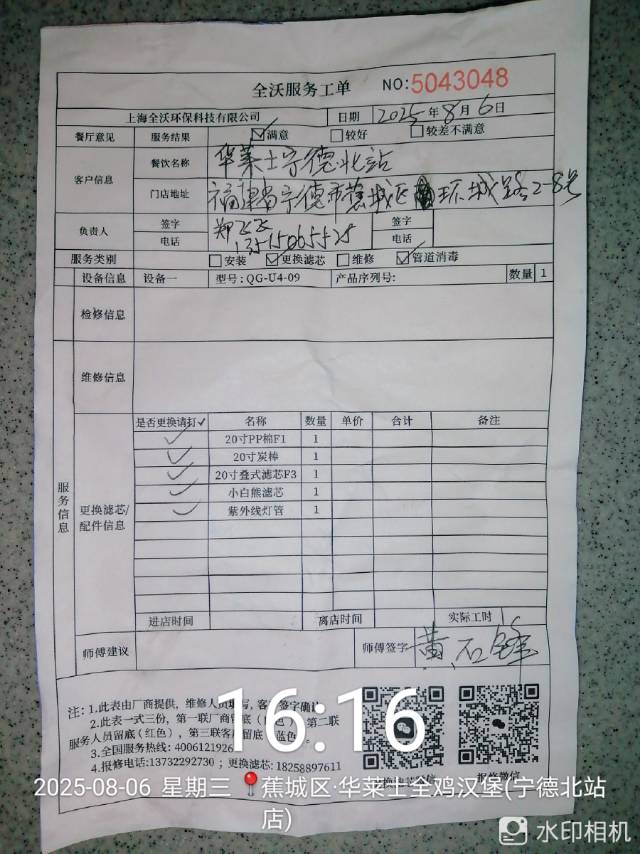 全沃服务工单 NO:5043048
上海全沃环保科技有限公司 日期 2025年8月6日
餐厅意见 服务结果 ☑满意 ☐较好 ☐较差不满意
客户信息 餐饮名称 华莱士宁德北站
门店地址 福建省宁德市蕉城区环城路2-8号
负责人 签字 郑飞飞 签字
电话 电话
服务类别 ☐安装 ☑更换滤芯 ☐维修 ☑管道消毒
设备信息 设备一 型号:QG-U4-09 产品序列号: 数量 1
检修信息
维修信息
服务信息
更换滤芯/配件信息
是否更换请打✓ 名称 数量 单价 合计 备注
✓ 20寸PP棉F1 1
✓ 20寸炭棒 1
✓ 20寸叠式滤芯F3 1
✓ 小白熊滤芯 1
✓ 紫外线灯管 1
进店时间 离店时间 实际工时
师傅建议 师傅签字 黄石锋
注:1.此表由厂商提供,维修人员填写,客户签字确认
2.此表一式三份,第一联厂商留底(白色),第二联
服务人员留底(红色),第三联客户留底(蓝色)
3.全国服务热线:4006121926
4.报修电话:13732292730;更换滤芯:18258897611
报修微信
16:16
2025-08-06 星期三 蕉城区·华莱士全鸡汉堡(宁德北站
店)
水印相机